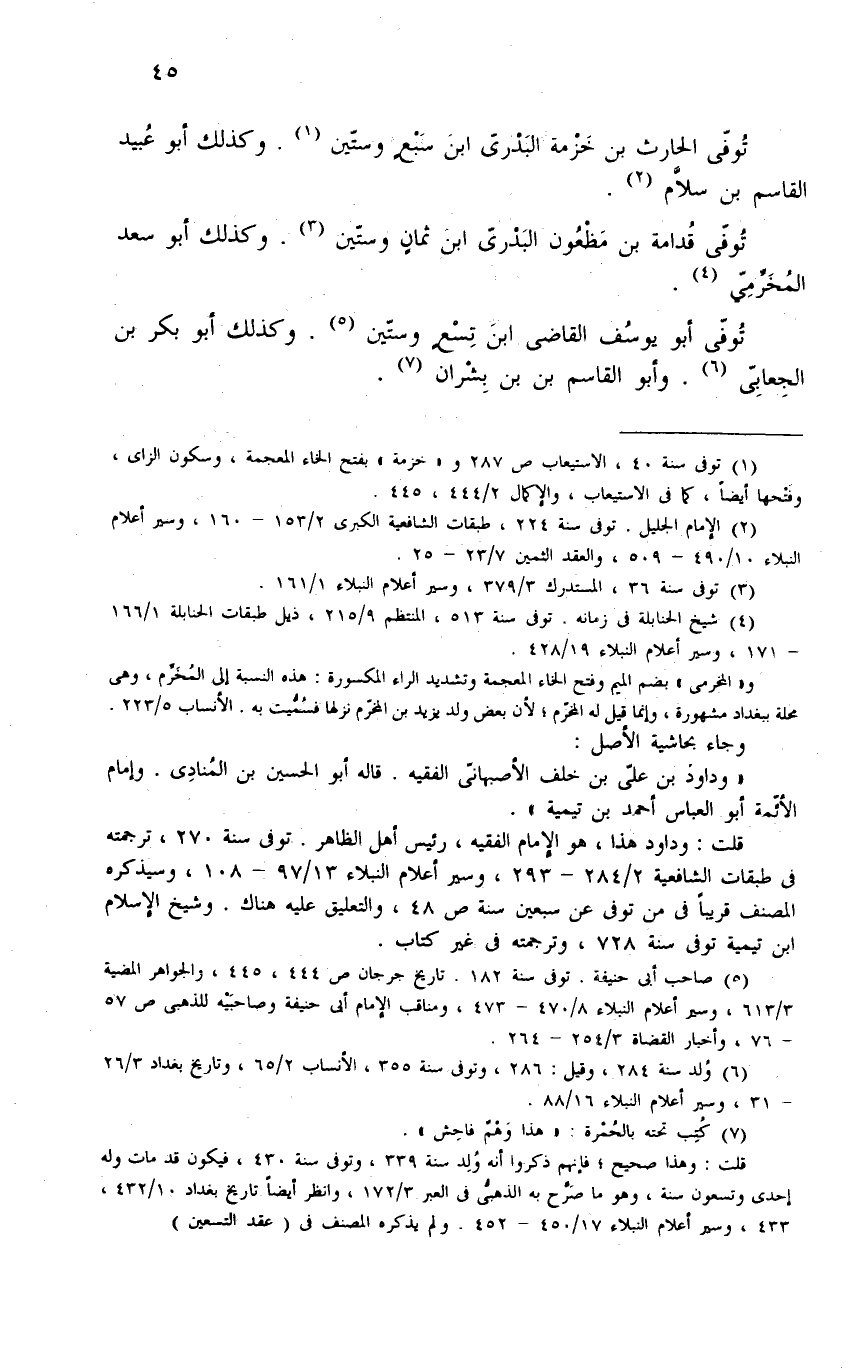 ٤٥
تُوفّى الحارث بن خَزْمة البَدْرىّ ابنَ سَبْعٍ وستّين (١) . وكذلك أبو عُبيد
القاسم بن سلاَّم (٢) .
تُوفّى قُدامة بن مَظْعُون البَدْرىّ ابنَ ثمانٍ وستّين (٣) . وكذلك أبو سعد
المُخَرِّمِيّ (٤) .
تُوفّى أبو يوسُف القاضى ابنَ تِسْعٍ وستّين (٥) . وكذلك أبو بكر بن
الجِعابِىّ (٦) . وأبو القاسم بن بن بِشْران (٧) .
(١) توفى سنة ٤٠ ، الاستيعاب ص ٢٨٧ و « خزمة » بفتح الخاء المعجمة ، وسكون الزاى ،
وفتْحها أيضاً ، كما فى الاستيعاب ، والإكمال ٤٤٤/٢ ، ٤٤٥ .
(٢) الإمام الجليل . توفى سنة ٢٢٤ ، طبقات الشافعية الكبرى ١٥٣/٢ – ١٦٠ ، وسير أعلام
النبلاء ٤٩٠/١٠ – ٥٠٩ ، والعقد الثمين ٢٣/٧ – ٢٥ .
(٣) توفى سنة ٣٦ ، المستدرك ٣٧٩/٣ ، وسير أعلام النبلاء ١٦١/١ .
(٤) شيخ الحنابلة فى زمانه . توفى سنة ٥١٣ ، المنتظم ٢١٥/٩ ، ذيل طبقات الحنابلة ١٦٦/١
– ١٧١ ، وسير أعلام النبلاء ٤٢٨/١٩ .
و« المخرمى » بضم الميم وفتح الخاء المعجمة وتشديد الراء المكسورة : هذه النسبة إلى المُخَرِّم ، وهى
محلة ببغداد مشهورة ، وإنما قيل له المخرّم ؛ لأن بعض ولد يزيد بن المخرّم نزلها فسُمِّيت به . الأنساب ٢٢٣/٥ .
وجاء بحاشية الأصل :
« وداودَ بن علىّ بن خلف الأصبهانىّ الفقيه . قاله أبو الحسين بن المُنادِى . وإمام
الأئمّة أبو العباس أحمد بن تيمية » .
قلت : وداود هذا ، هو الإمام الفقيه ، رئيس أهل الظاهر . توفى سنة ٢٧٠ ، ترجمته
فى طبقات الشافعية ٢٨٤/٢ – ٢٩٣ ، وسير أعلام النبلاء ٩٧/١٣ – ١٠٨ ، وسيذكره
المصنف قريباً فى من توفى عن سبعين سنة ص ٤٨ ، والتعليق عليه هناك . وشيخ الإسلام
ابن تيمية توفى سنة ٧٢٨ ، وترجمته فى غير كتاب .
(٥) صاحب أبى حنيفة . توفى سنة ١٨٢ . تاريخ جرجان ص ٤٤٤ ، ٤٤٥ ، والجواهر المضية
٦١٣/٣ ، وسير أعلام النبلاء ٤٧٠/٨ – ٤٧٣ ، ومناقب الإمام أبى حنيفة وصاحبَيْه للذهبى ص ٥٧
– ٧٦ ، وأخبار القضاة ٢٥٤/٣ – ٢٦٤ .
(٦) وُلد سنة ٢٨٤ ، وقيل : ٢٨٦ ، وتوفى سنة ٣٥٥ ، الأنساب ٦٥/٢ ، وتاريخ بغداد ٢٦/٣
– ٣١ ، وسير أعلام النبلاء ٨٨/١٦ .
(٧) كُتِب تحته بالحُمْرة : « هذا وَهْمٌ فاحِش » .
قلت : وهذا صحيح ؛ فإنهم ذكروا أنه وُلِد سنة ٣٣٩ ، وتوفى سنة ٤٣٠ ، فيكون قد مات وله
إحدى وتسعون سنة ، وهو ما صَرَّح به الذهبىُّ فى العبر ١٧٢/٣ ، وانظر أيضاً تاريخ بغداد ٤٣٢/١٠ ،
٤٣٣ ، وسير أعلام النبلاء ٤٥٠/١٧ – ٤٥٢ . ولم يذكره المصنف فى ( عقد التسعين )